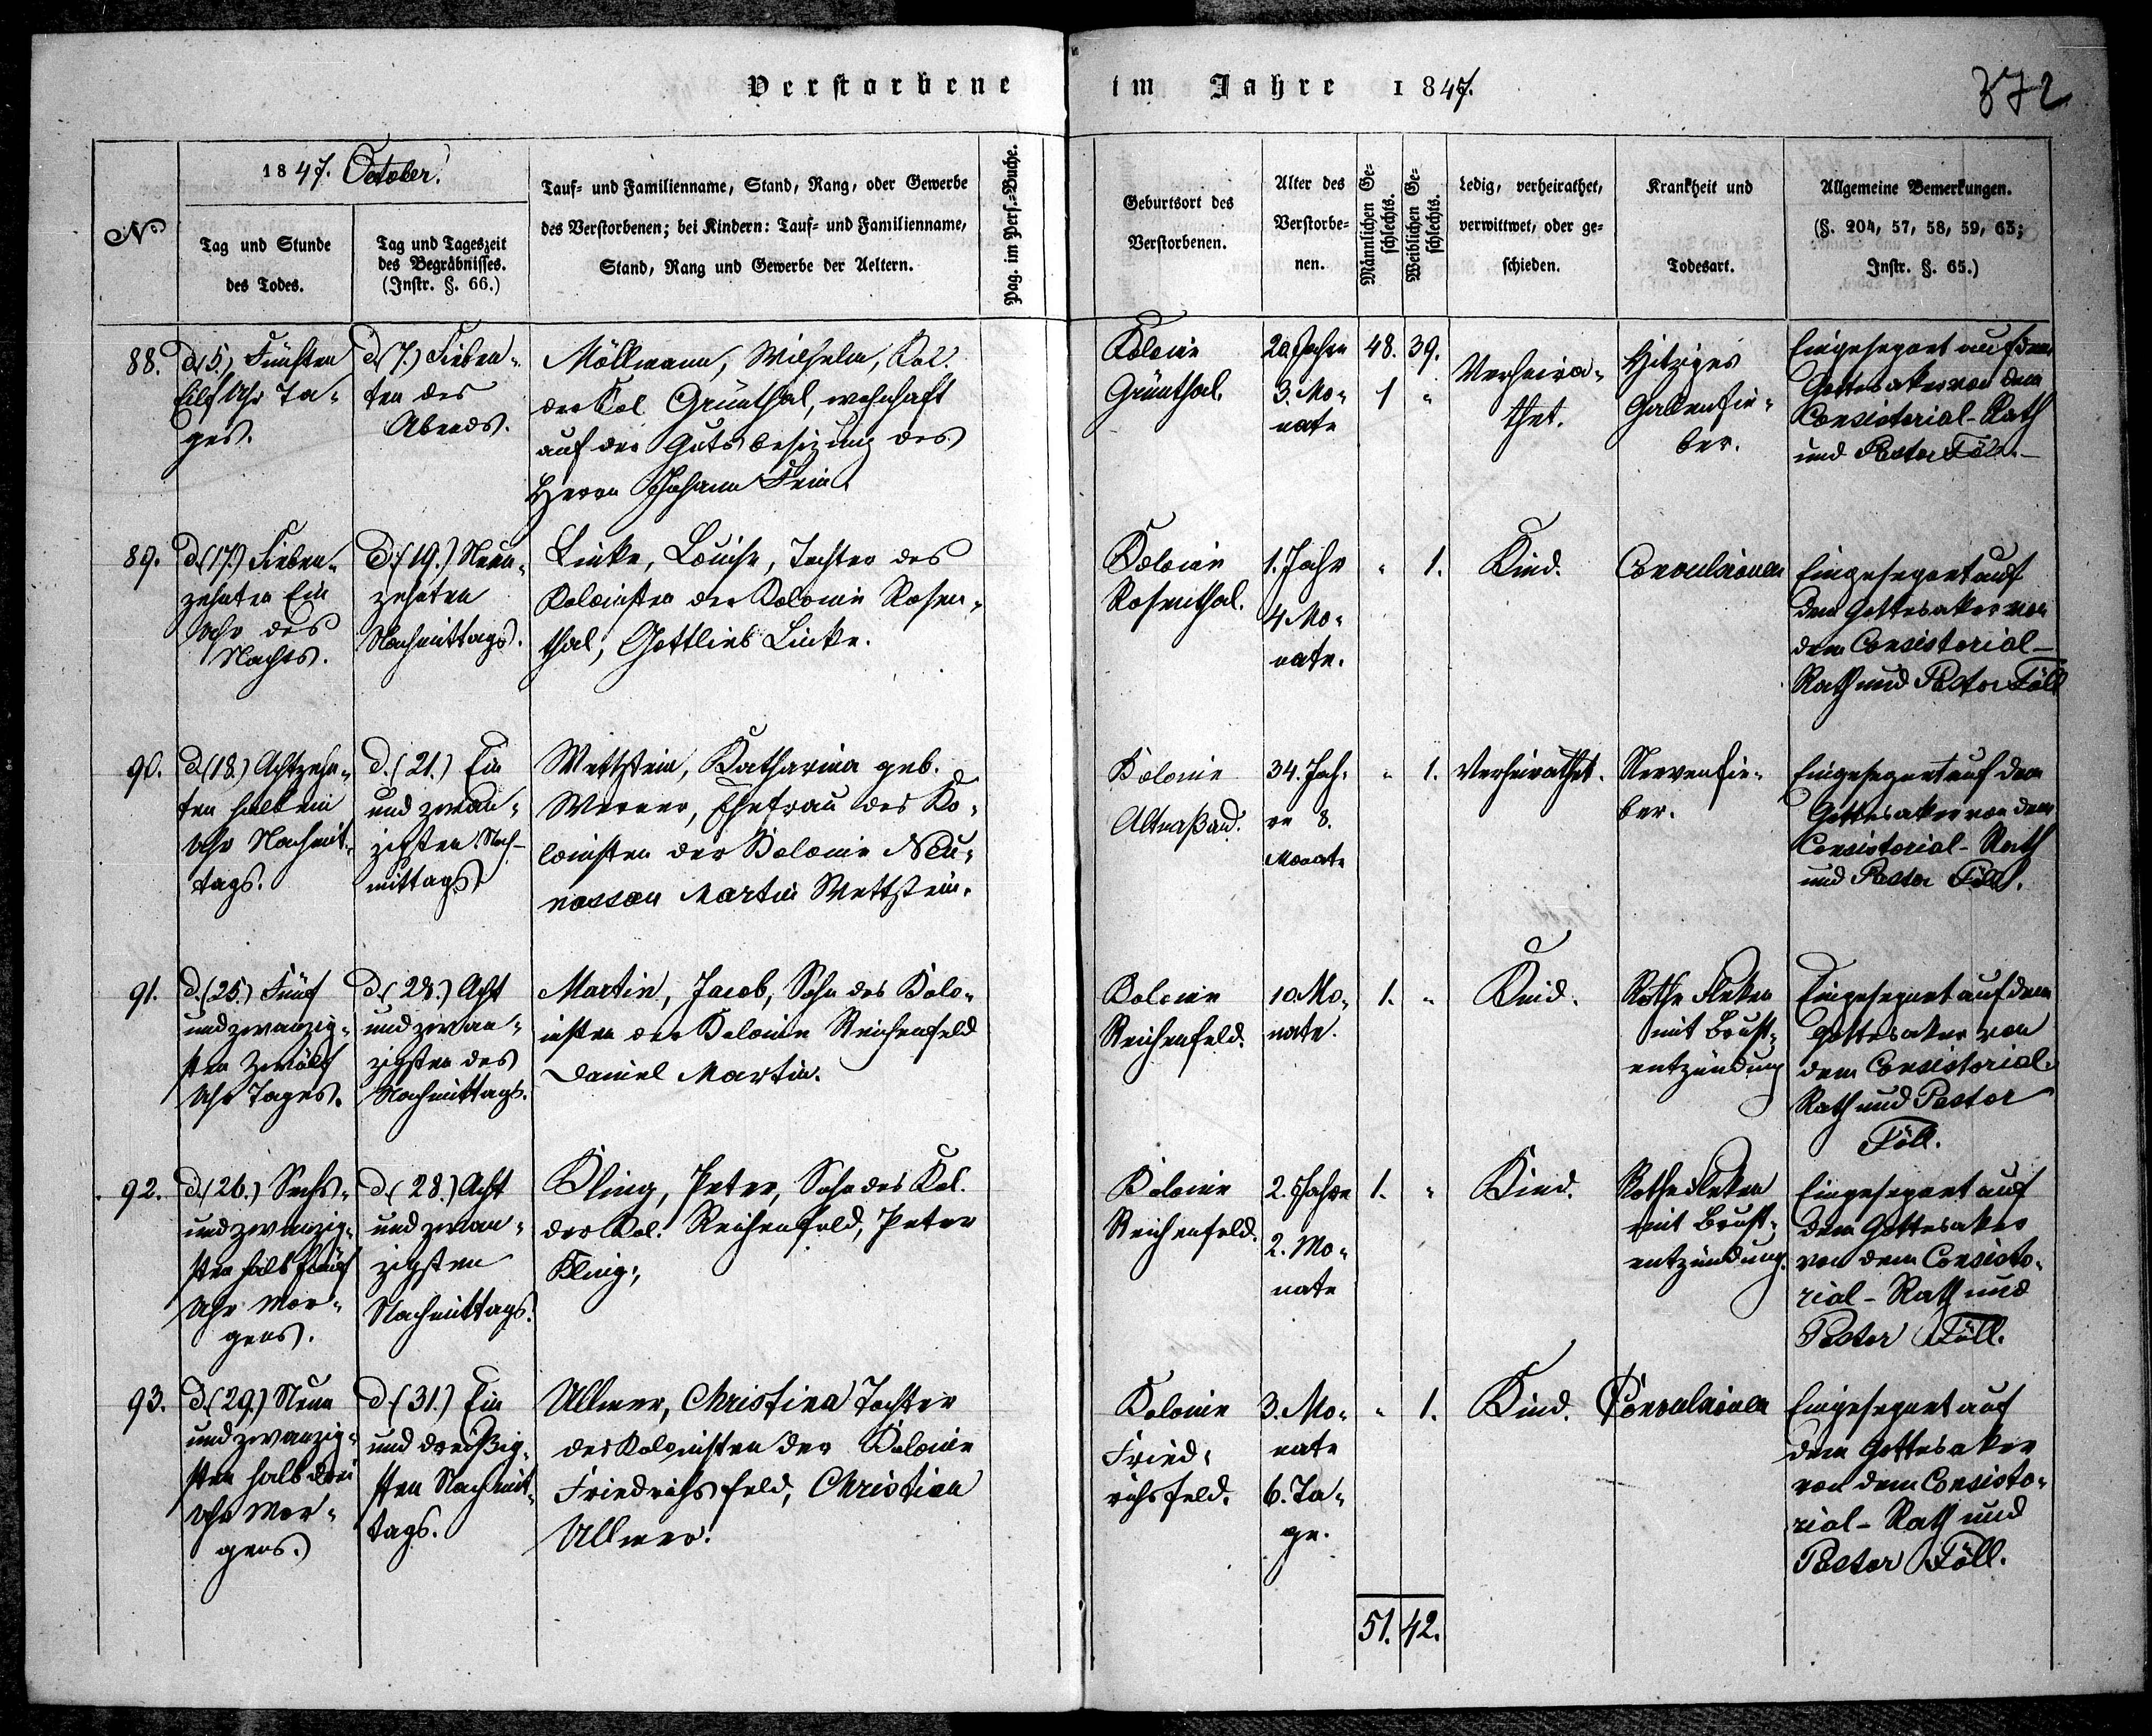 Verstorbene im Jahre 1847.
372
No
1847. October.
Tag und Stunde
des Todes.
Tag und Tageszeit
des Begräbnisses.
(Instr. §. 66.)
Tauf- und Familienname, Stand, Rang, oder Gewerbe
des Verstorbenen; bei Kindern: Tauf- und Familienname,
Stand, Rang und Gewerbe der Aeltern.
Pag. im Pers.-Buche.
Geburtsort des
Verstorbenen.
Alter des
Verstorbe-
nen.
Männlichen Ge-
schlechts.
Weiblichen Ge-
schlechts.
Ledig, verheirathet,
verwittwet, oder ge-
schieden.
Krankheit und
Todesart.
Allgemeine Bemerkungen.
(§. 204, 57, 58, 59, 63;
Instr. §. 65.)
88.
d. (5.) Fünften
Eilf Uhr Ta-
ges.
d. (7.) Sieben-
ten des
Abends.
Möllmann, Wilhelm, Kol.
der Kol. Grünthal, wohnhaft
auf der Gutsbesizung des
Herrn Johann Fein.
Kolonie
Grünthal.
20 Jahre
3. Mo-
nate
48. 39.
1 "
Verheira-
thet.
Hitziges
Gallenfie-
ber.
Eingesegnet auf dem
Gottesaker von dem
Consistorial-Rath
und Pastor Föll.
89.
d. (17.) Sieben-
zehnten Ein
Uhr des
Nachts.
d. (19.) Neun-
zehnten
Nachmittags.
Linke, Louise, Tochter des
Kolonisten der Kolonie Rosen-
thal, Gottlieb Linke.
Kolonie
Rosenthal.
1. Jahr
4. Mo-
nate.
" 1.
Kind.
Convulsionen
Eingesegnet auf
dem Gottesaker von
dem Consistorial-
Rath und Pastor Föll
90.
d. (18.) Achtzehn-
ten halb ein
Uhr Nachmit-
tags.
d. (21.) Ein
und zwan-
zigsten Nach-
mittags
Wettstein, Katharina geb.
Werner, Ehefrau des Ko-
lonisten der Kolonie Neu-
nassau Martin Wettstein.
Kolonie
Altnaßau.
34. Jah-
re 8.
Monate
" 1.
Verheirathet.
Nervenfie-
ber.
Eingesegnet auf dem
Gottesaker von dem
Consistorial-Rath
und Pastor Föll.
91.
d. (25.) Fünf
und zwanzig-
sten Zwölf
Uhr Tages.
d. (28.) Acht
und zwan-
zigsten des
Nachmittags.
Martin, Jacob, Sohn des Kolo-
nisten der Kolonie Reichenfeld
Daniel Martin.
Kolonie
Reichenfeld.
10 Mo-
nate.
1. "
Kind.
Rothe Fleken
mit Brust-
entzündung
Eingesegnet auf dem
Gottesaker von
dem Consistorial-
Rath und Pastor
Föll.
92.
d. (26.) Sechs-
und zwanzig-
sten halb fünf
Uhr Mor-
gens.
d. (28.) Acht
und zwan-
zigsten
Nachmittags.
Kling, Peter, Sohn des Kol.
der Kol. Reichenfeld, Peter
Kling.
Kolonie
Reichenfeld.
2. Jahre
2. Mo-
nate
1. "
Kind.
Rothe Fleken
mit Brust-
entzündung.
Eingesegnet auf
dem Gottesaker
von dem Consisto-
rial-Rath und
Pastor Föll.
93.
d. (29.) Neun
und zwanzig-
sten halb drei
Uhr Mor-
gens.
d. (31.) Ein
und dreißig-
sten Nachmit-
tags.
Ullmer, Christina Tochter
des Kolonisten der Kolonie
Friedrichsfeld, Christian
Ullmer.
Kolonie
Fried-
richsfeld.
3. Mo-
nate
6. Ta-
ge.
" 1.
Kind.
Convulsionen
Eingesegnet auf
dem Gottesaker
von dem Consisto-
rial-Rath und
Pastor Föll.
51. 42.